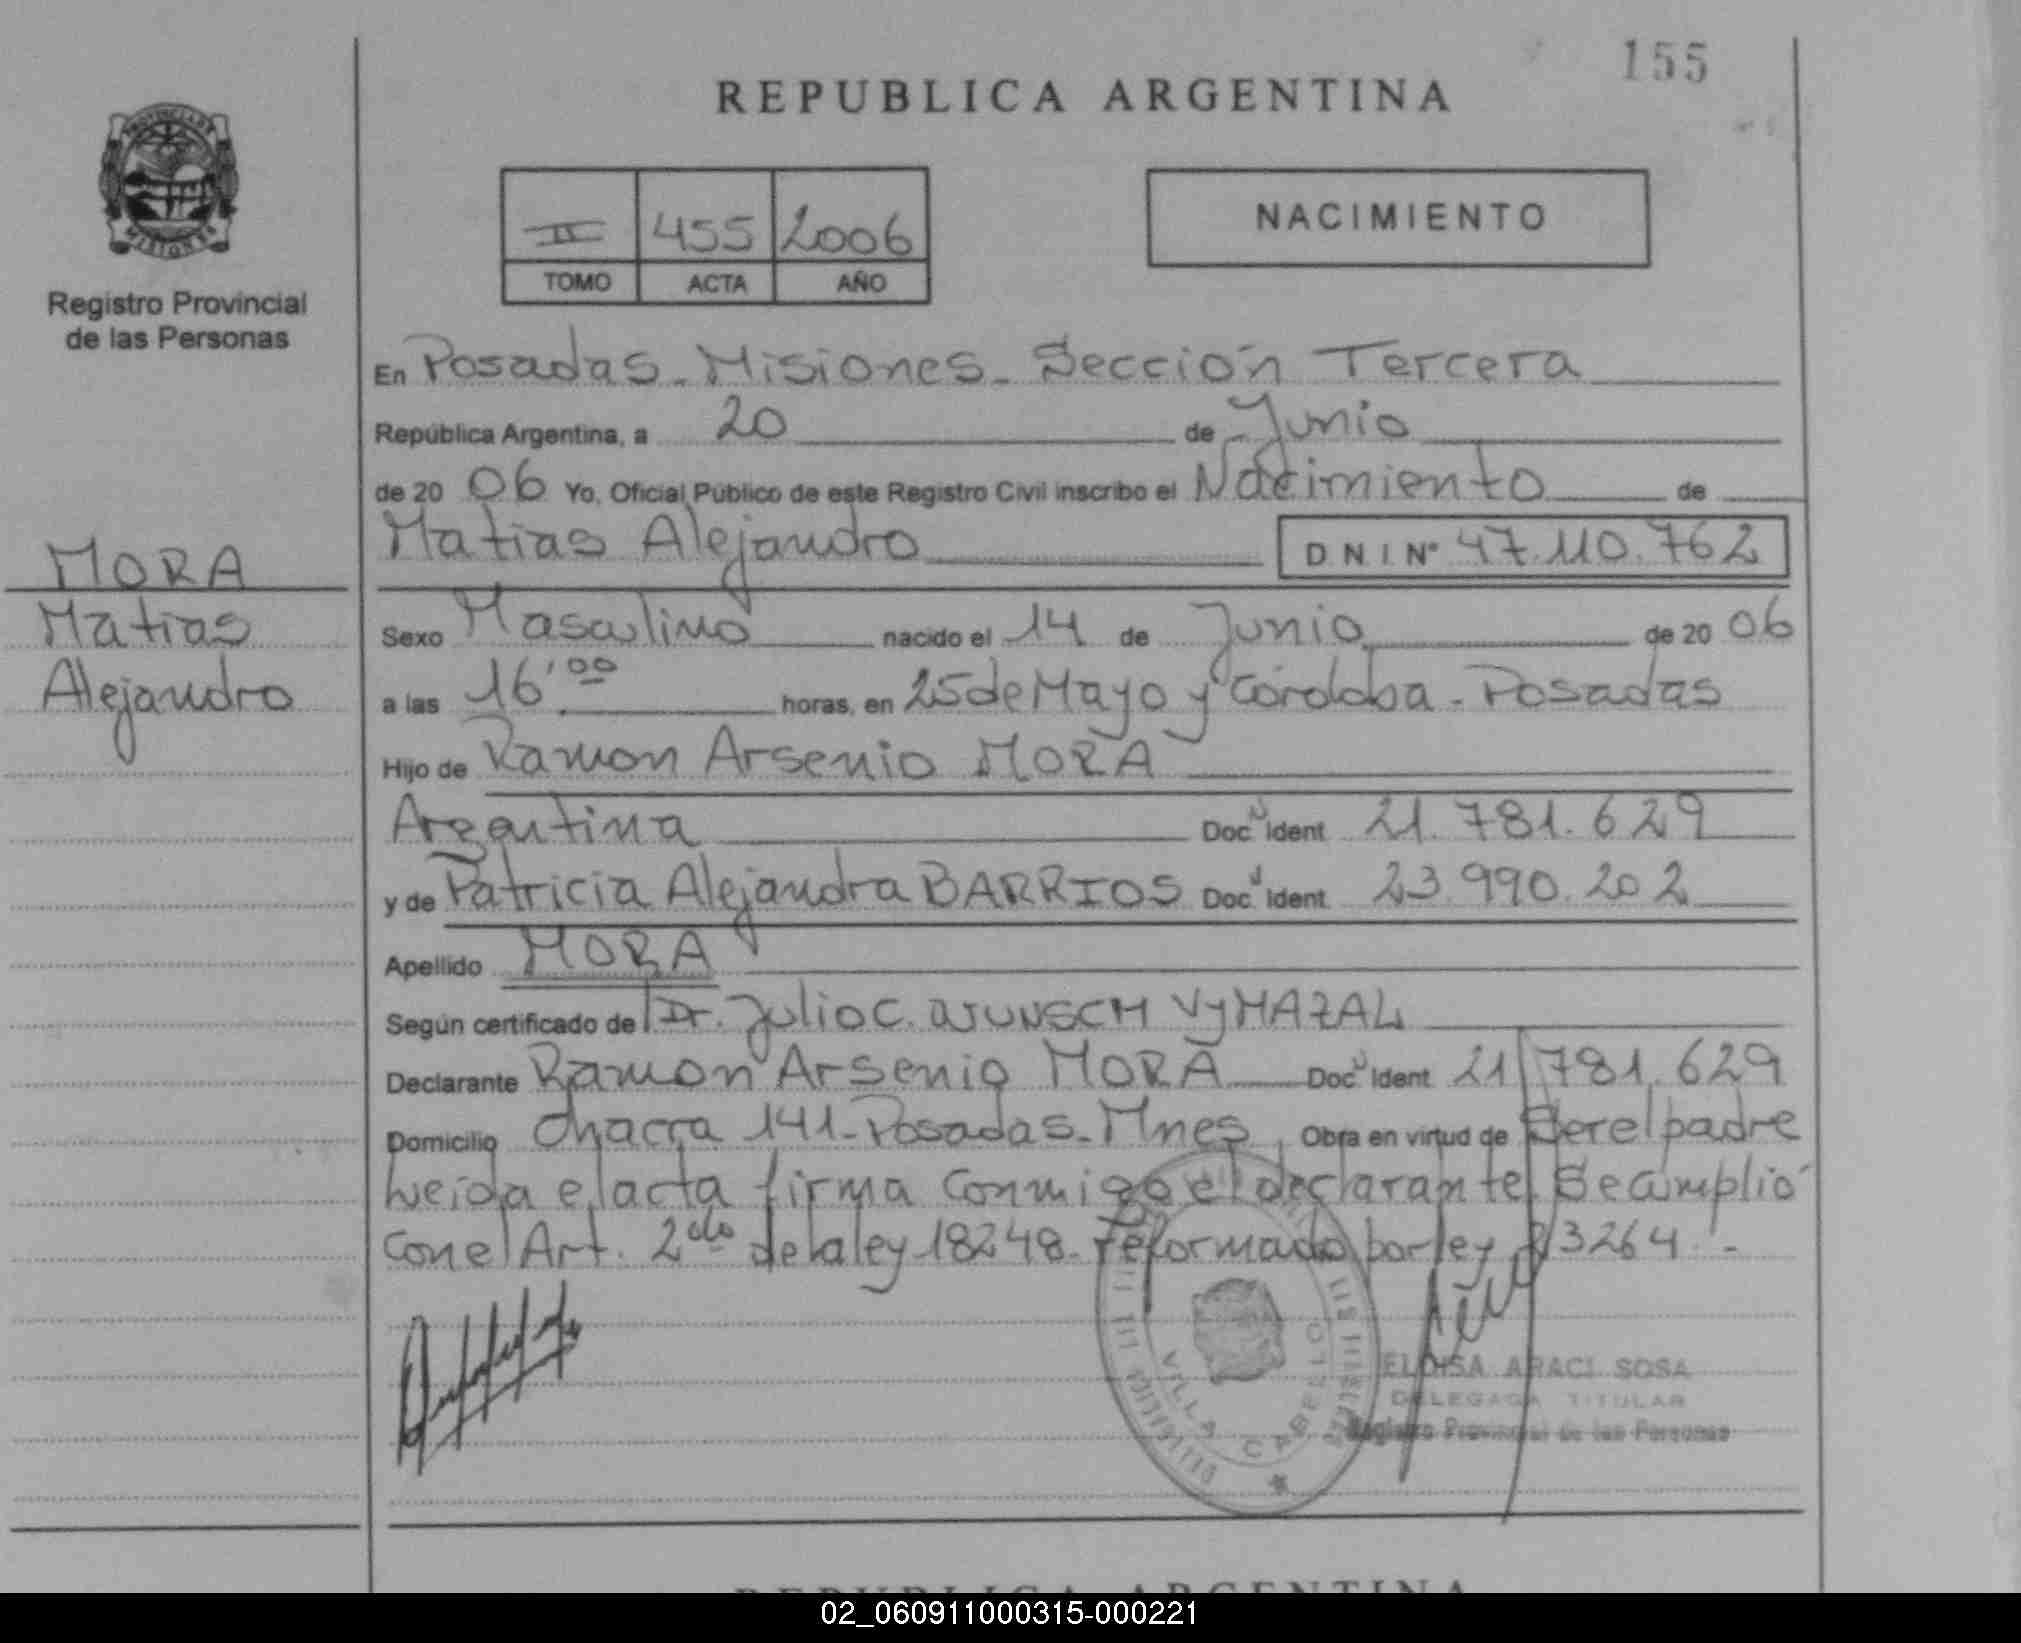 155
REPUBLICA ARGENTINA
PROVINCIA DE
MISIONES
Registro Provincial
de las Personas
II 455 2006
TOMO ACTA AÑO
NACIMIENTO
En Posadas - Misiones - Sección Tercera
República Argentina, a 20 de Junio
de 20 06 Yo, Oficial Público de este Registro Civil inscribo el Nacimiento de
Matias Alejandro D N I Nº 47.110.762
MORA
Matias
Alejandro
Sexo Masculino nacido el 14 de Junio de 20 06
a las 16'00 horas, en 25 de Mayo y Córdoba - Posadas
Hijo de Ramon Arsenio MORA
Argentina Doc Ident 21.781.629
y de Patricia Alejandra BARRIOS Doc Ident 23.990.202
Apellido MORA
Según certificado de Dr. Julio C. WUNSCH VYMAZAL
Declarante Ramon Arsenio MORA Doc Ident 21.781.629
Domicilio Chacra 141 - Posadas - Mnes Obra en virtud de Ser el padre
Leida el acta firma conmigo el declarante. Se cumplió
con el Art. 2do de la ley 18248 - reformado por ley 23264. -
VILLA CABELLO
ELOISA ARACI SOSA
DELEGADA TITULAR
Registro Provincial de las Personas
REPUBLICA ARGENTINA
02_060911000315-000221